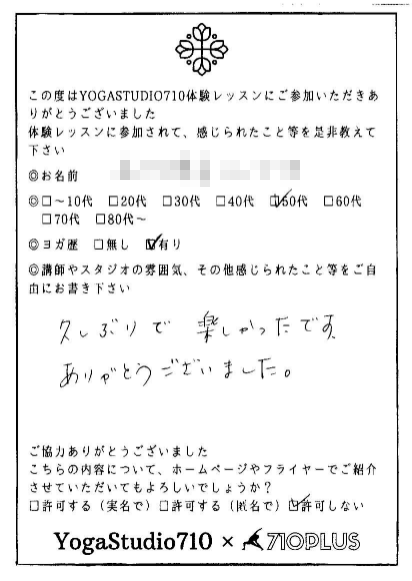 この度はYOGASTUDIO710体験レッスンにご参加いただきあ
りがとうございました
体験レッスンに参加されて、感じられたこと等を是非教えて
下さい
◎お名前
◎□〜10代 □20代 □30代 □40代 ☑50代 □60代
□70代 □80代〜
◎ヨガ歴 □無し ☑有り
◎講師やスタジオの雰囲気、その他感じられたこと等をご自
由にお書き下さい
久しぶりで 楽しかったです。
ありがとうございました。
ご協力ありがとうございました
こちらの内容について、ホームページやフライヤーでご紹介
させていただいてもよろしいでしょうか？
□許可する（実名で）□許可する（匿名で）☑許可しない
YogaStudio710 × 710PLUS